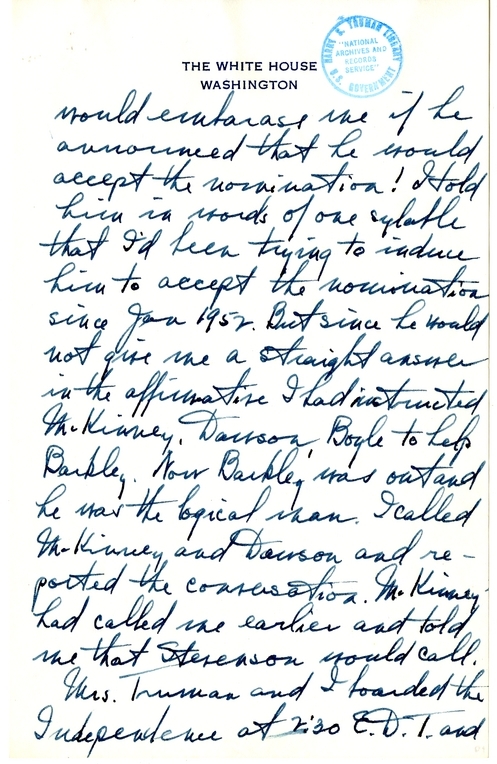 THE WHITE HOUSE
WASHINGTON
HARRY S. TRUMAN LIBRARY
"NATIONAL
ARCHIVES AND
RECORDS
SERVICE"
U.S. GOVERNMENT
would embarass me if he
announced that he would
accept the nomination! I told
him in words of one sylable
that I'd been trying to induce
him to accept the nomination
since Jan 1952. But since he would
not give me a straight answer
in the affirmative I had instructed
McKinney, Dawson, Boyle to help
Barkley. Now Barkley was out and
he was the logical man. I called
McKinney and Dawson and re-
ported the conversation. McKinney
had called me earlier and told
me that Stevenson would call.
Mrs. Truman and I boarded the
Independence at 2:30 E.D.T. and